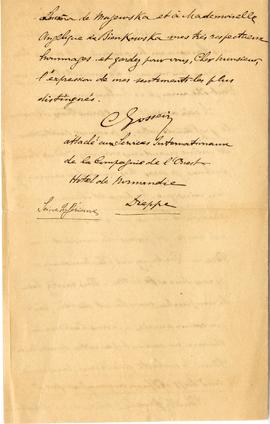 de Majewska et à Mademoiselle
Angélique de Bienkowska mes très respectueux
hommages et gardez pour vous, Cher Monsieur,
l'expression de mes sentiments les plus
distingués.
Gosselin
attaché aux Services Internationaux
de la Compagnie de l'Ouest
Hôtel de Normandie
Dieppe
Seine Inférieure